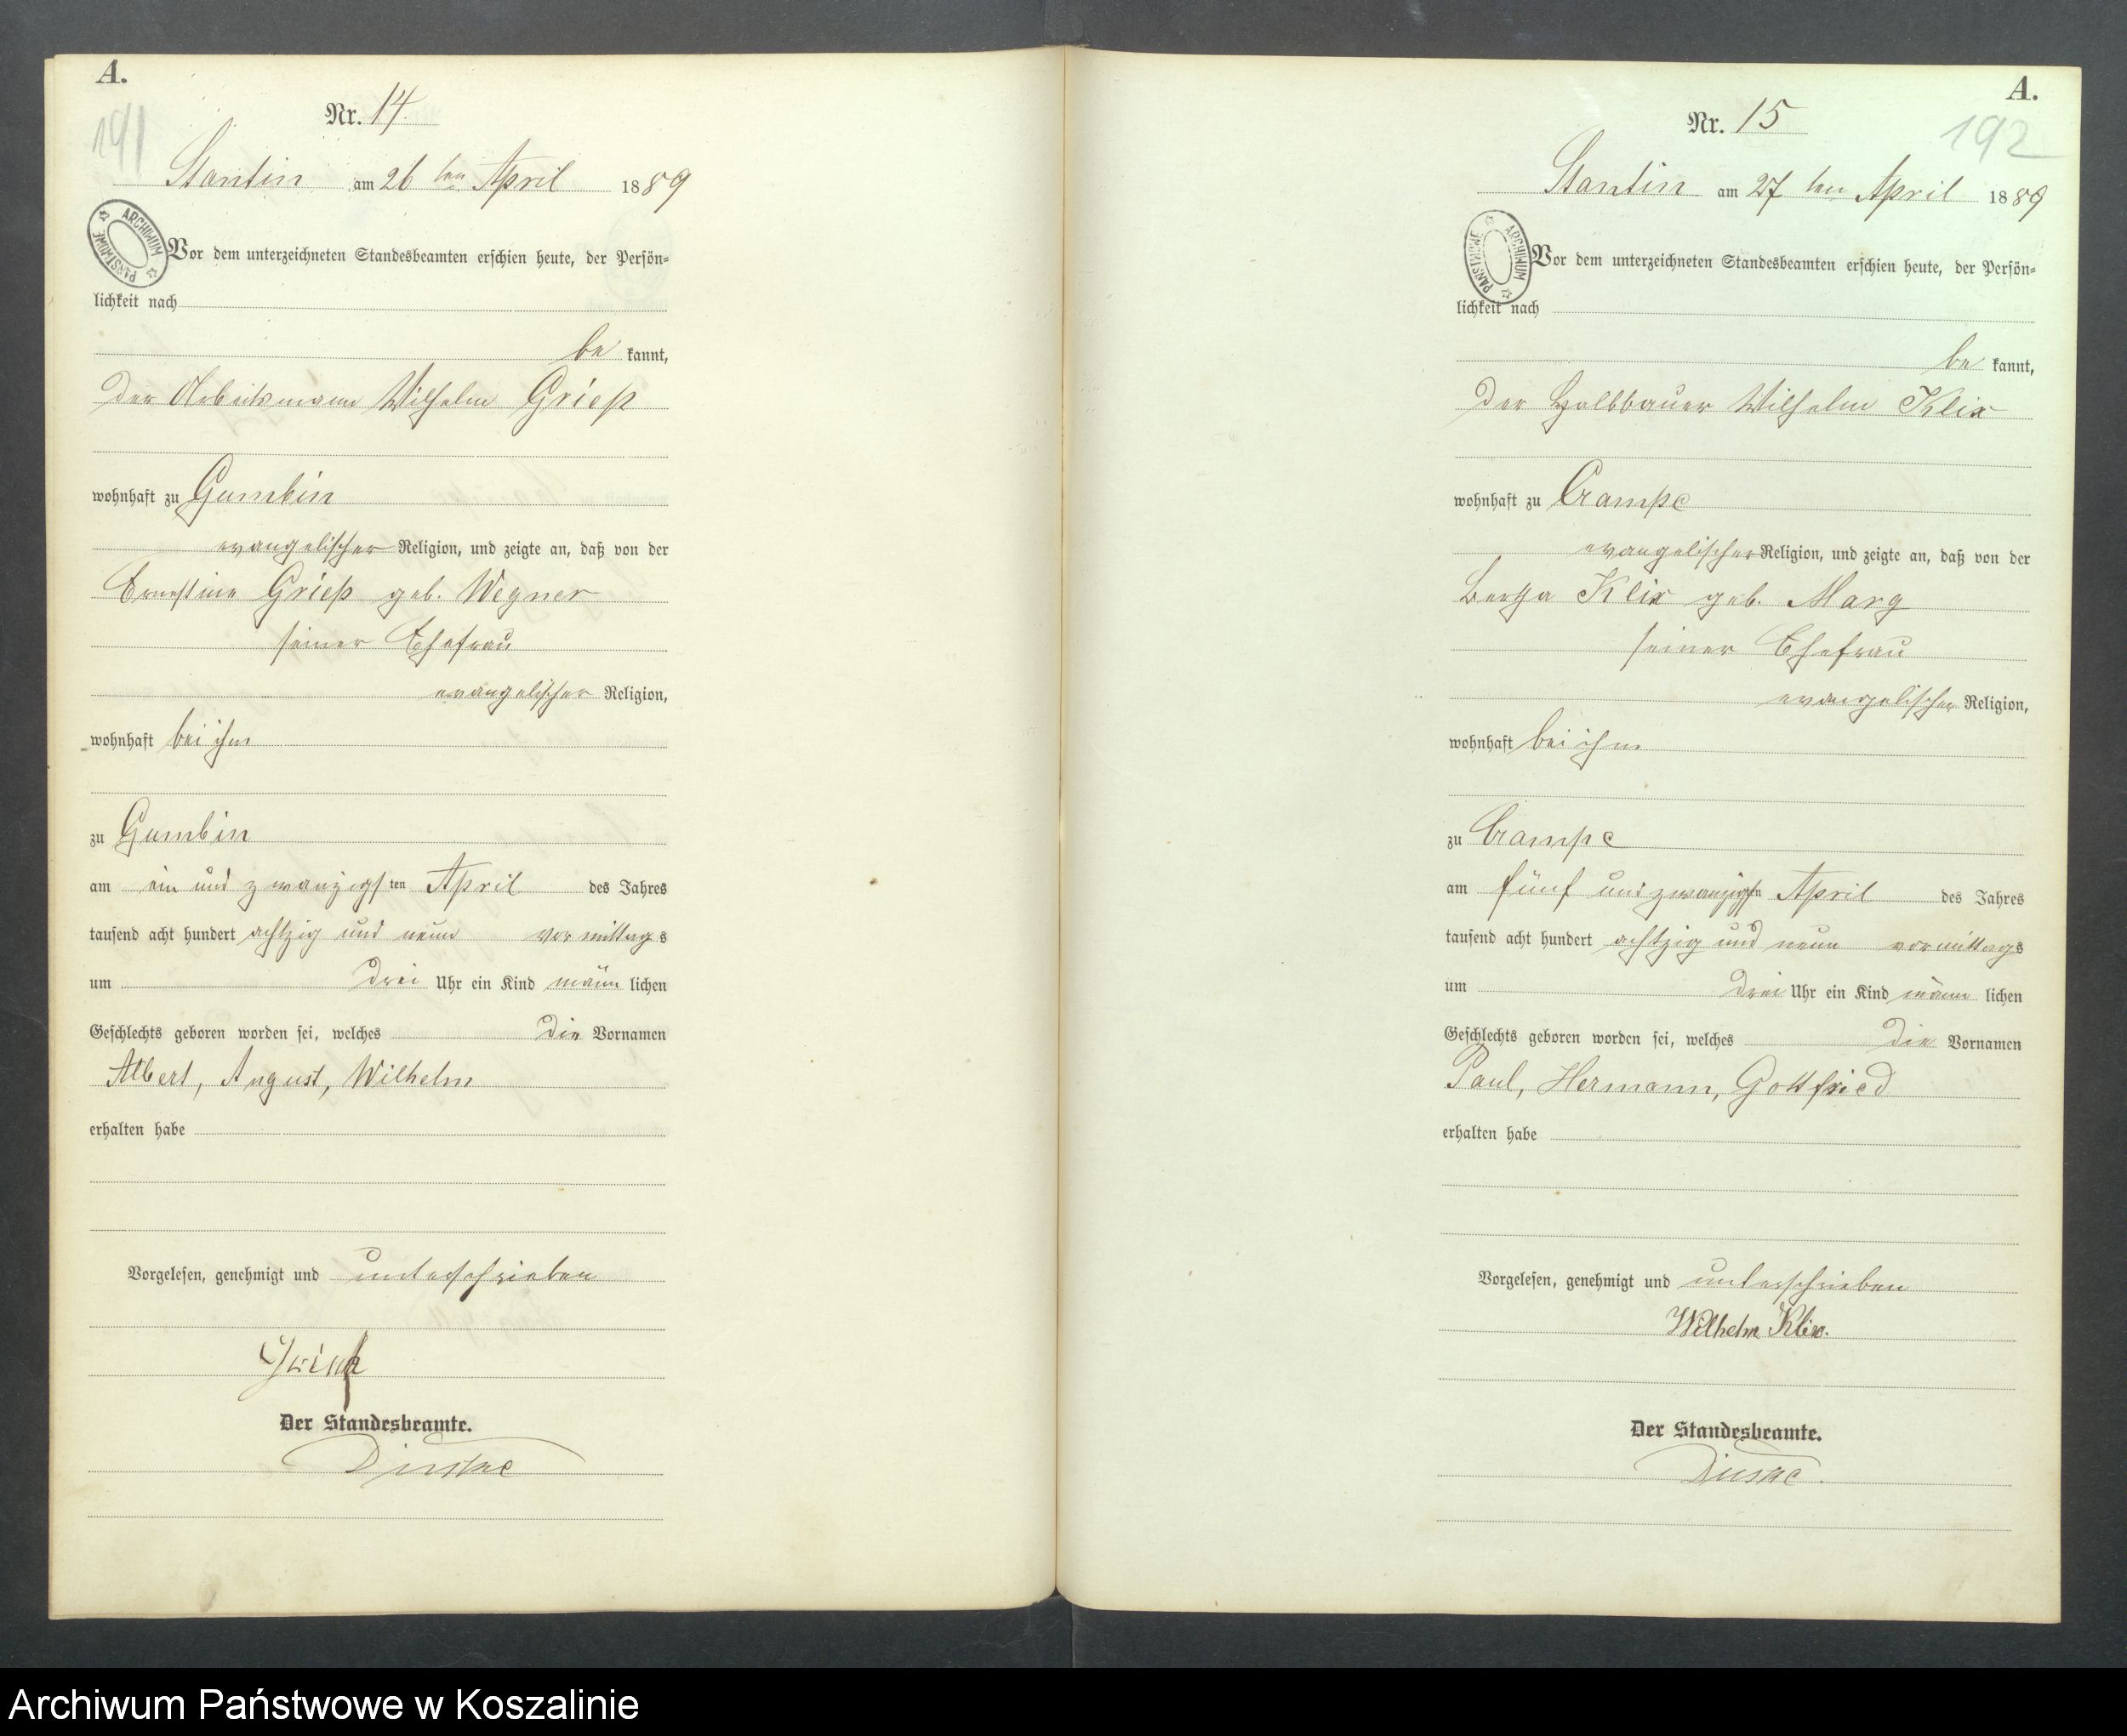 A.
191
Nr. 14.
Stantin am 26 ten April 1889
ARCHIWUM PAŃSTWOWE
Vor dem unterzeichneten Standesbeamten erschien heute, der Persön=
lichkeit nach
be kannt,
der Arbeitsmann Wilhelm Grieß
wohnhaft zu Gumbin
evangelischer Religion, und zeigte an, daß von der
Ernestine Grieß geb. Wegner
seiner Ehefrau
evangelischer Religion,
wohnhaft bei ihm
zu Gumbin
am ein und zwanzigsten April des Jahres
tausend acht hundert achtzig und neun vormittags
um drei Uhr ein Kind männlichen
Geschlechts geboren worden sei, welches die Vornamen
Albert, August, Wilhelm
erhalten habe
Vorgelesen, genehmigt und unterschrieben
Grieß
Der Standesbeamte.
A.
192
Nr. 15
Stantin am 27 ten April 1889
ARCHIWUM PAŃSTWOWE
Vor dem unterzeichneten Standesbeamten erschien heute, der Persön=
lichkeit nach
be kannt,
der Halbbauer Wilhelm Klix
wohnhaft zu Crampe
evangelischer Religion, und zeigte an, daß von der
Bertha Klix geb. Marg
seiner Ehefrau
evangelischer Religion,
wohnhaft bei ihm
zu Crampe
am fünf und zwanzigsten April des Jahres
tausend acht hundert achtzig und neun vormittags
um drei Uhr ein Kind männlichen
Geschlechts geboren worden sei, welches die Vornamen
Paul, Hermann, Gottfried
erhalten habe
Vorgelesen, genehmigt und unterschrieben
Wilhelm Klix.
Der Standesbeamte.
Archiwum Państwowe w Koszalinie